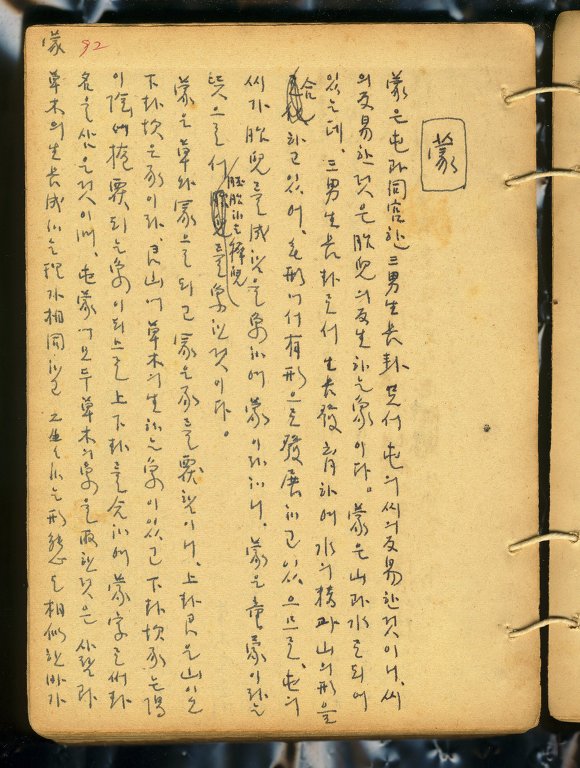 蒙 92
蒙
蒙은 屯과 同宮한 三男生長卦로서 屯의 씨의 交易한것이니, 씨
의 交易한것은 胎兒의 交生하는 象이다。 蒙은 山과 水로 되어
있는데, 三男生長卦로서 生長發育하여 水의 精과 山의 形을
合하고 있어, 無形에서 有形으로 發展하고 있으므로, 屯의
씨가 胎兒를 成한 것을 象하여 蒙이라하니, 蒙은 童蒙이라는
뜻으로서 胚胎하는 穉兒를 象한것이다。
蒙은 草와 冡으로 되고 冡은 豕를 覆한것이니, 上卦 艮은 山이오
下卦 坎은 豕이라, 艮山에 草木의 生하는 象이 있고 下卦 坎豕는 陽
이 陰에 掩覆되는 象이 되므로 上下卦를 合하여 蒙字로써 卦
名을 삼은것이며, 屯蒙에 모두 草木의 象을 取한것은 사람과
草木의 生長成하는 理가 相同하고 그 生하는 形態도 相似한 바가